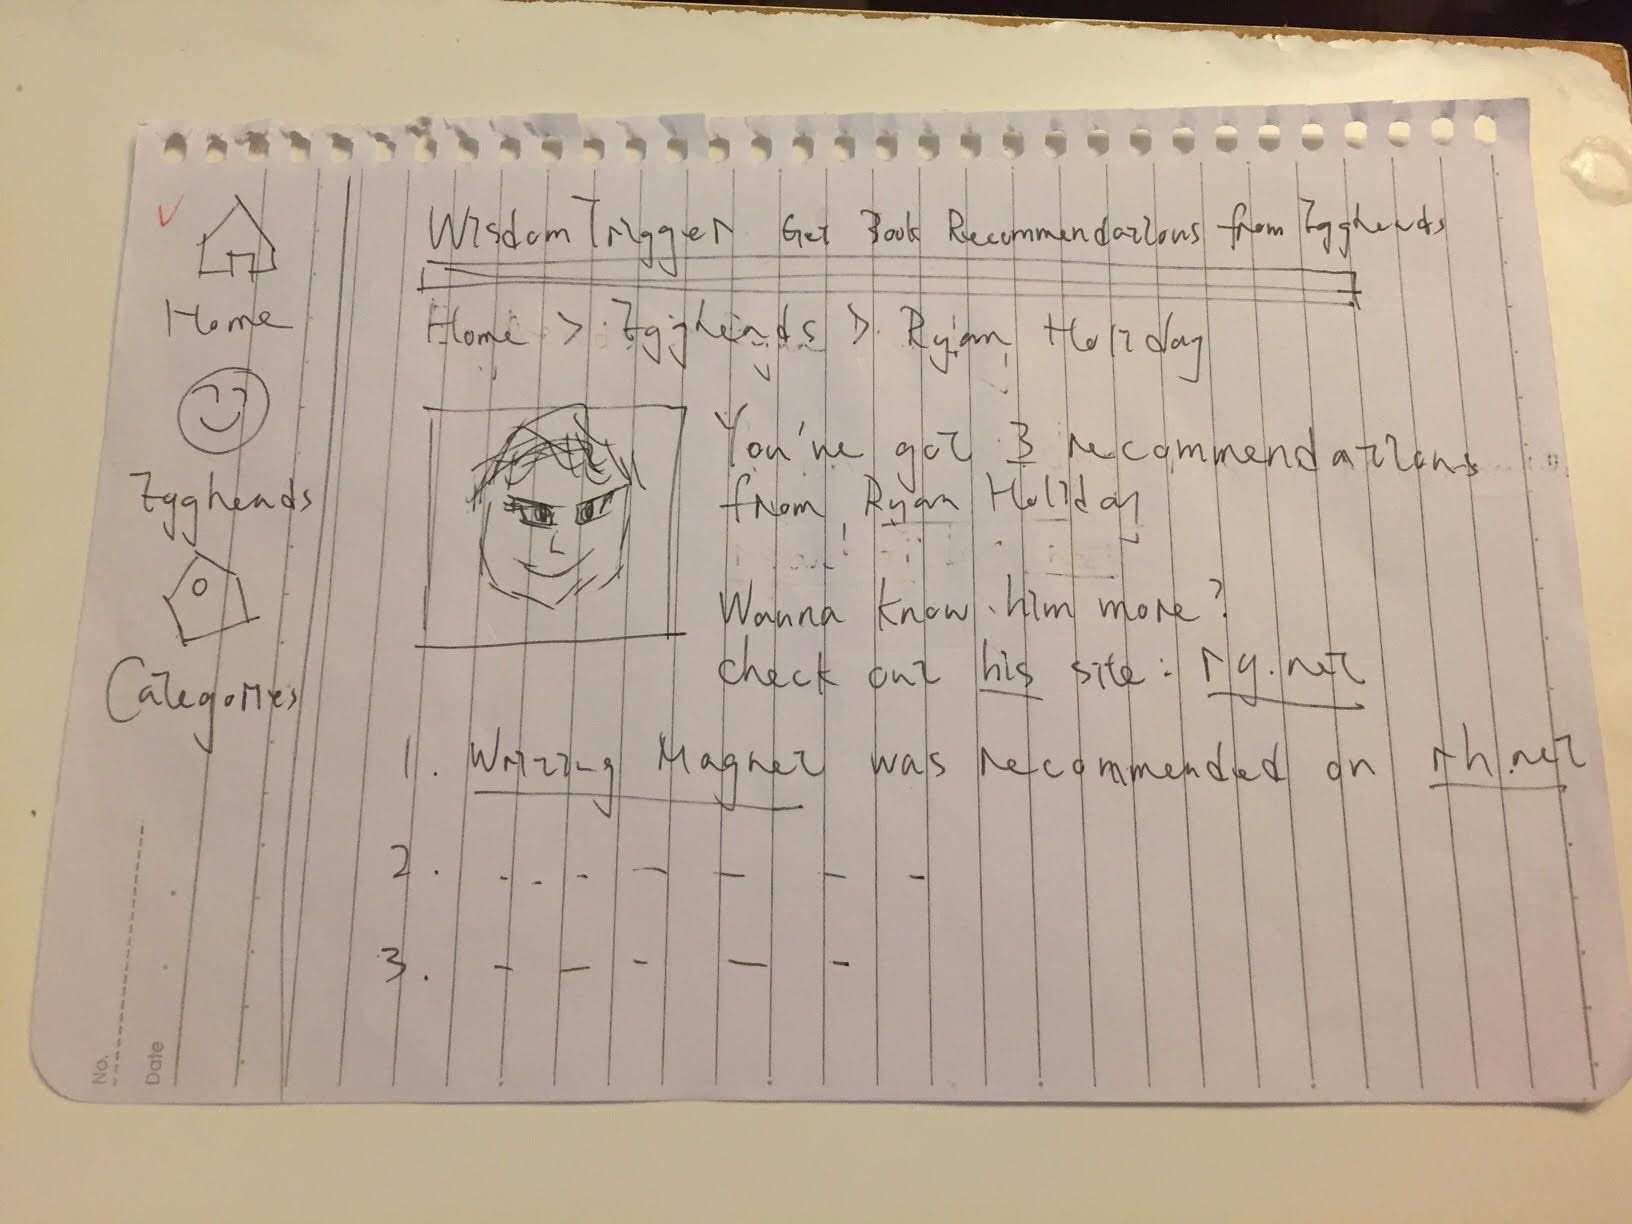 Home
Eggheads
Categories
WisdomTrigger Get Book Recommendations from Eggheads
Home > Eggheads > Ryan Holiday
You've got 3 recommendations
from Ryan Holiday
Wanna know him more?
check out his site: ry.net
1. Writing Magnet was recommended on rh.net
2.
3.
No.
Date